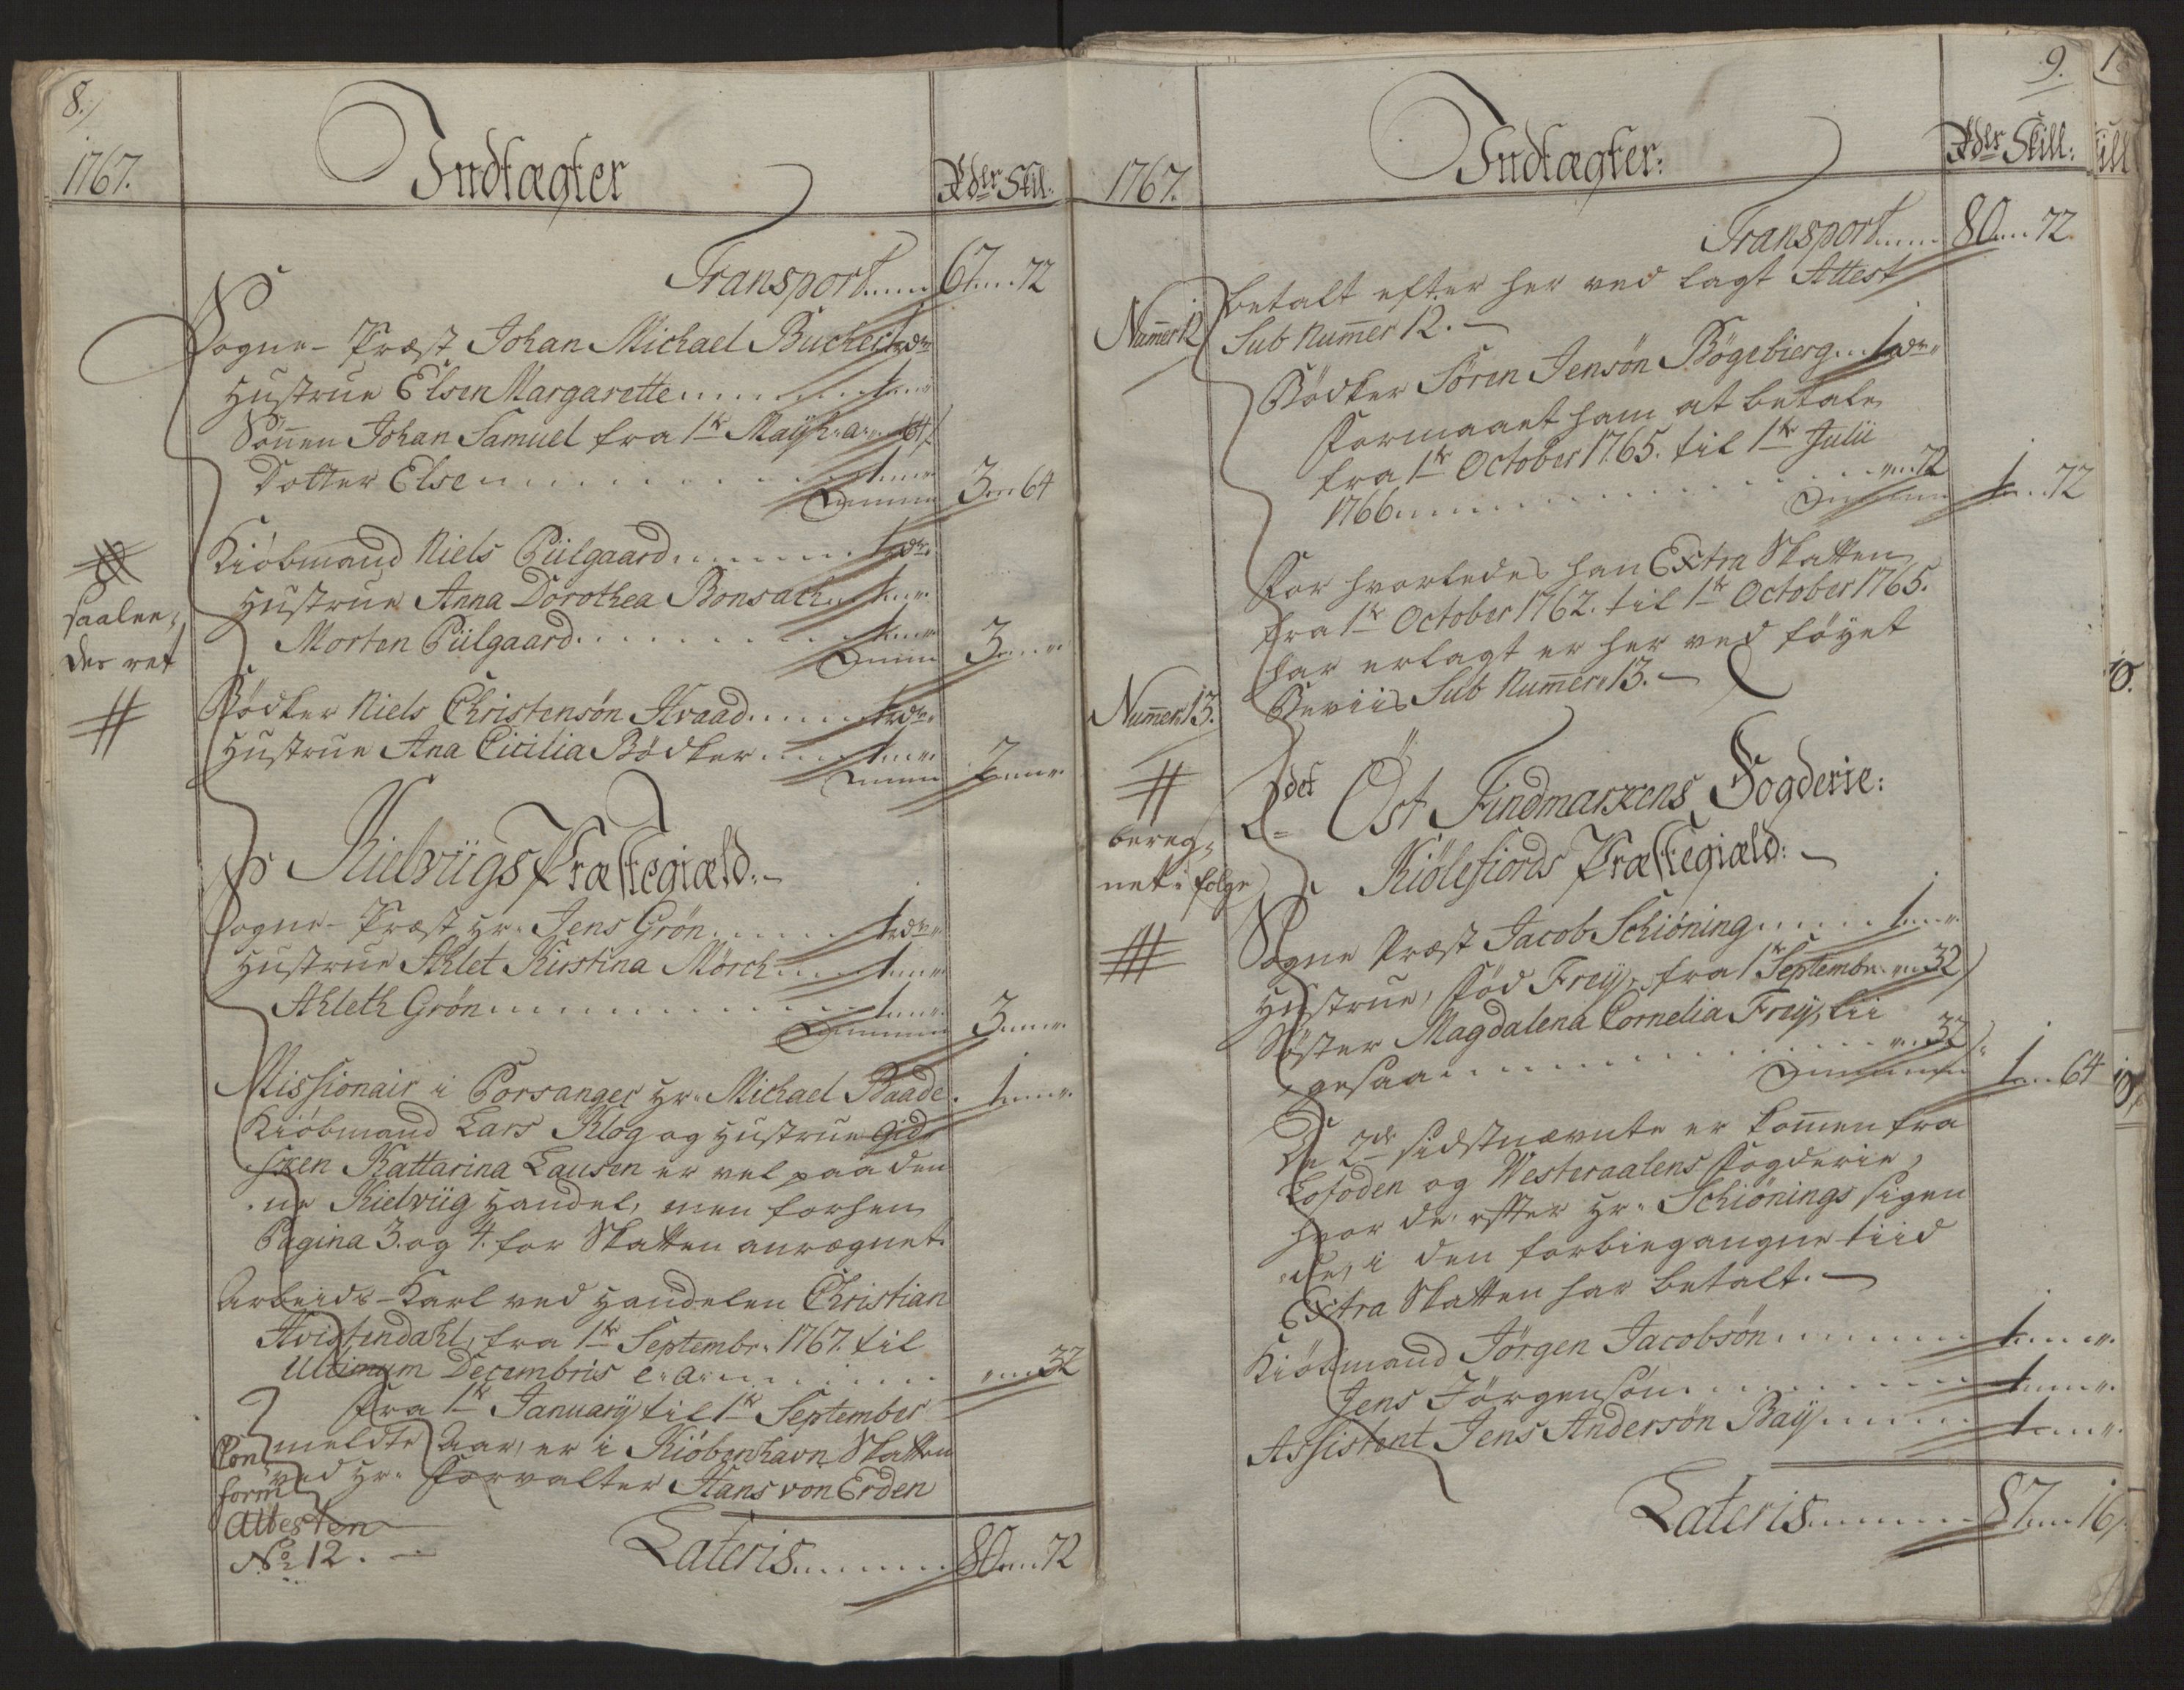 8.
1767.
Indtægter
Rdlr Skil:
Transport..... 67....72
Sogne-Præst Johan Michael Buchei 1rdr
Hustrue Elsen Margarette........1....
Sönnen Johan Samuel fra 1te Maÿ h: a: 64
Dotter Else..........1....
3...64
Kiöbmand Niels Piilgaard.......1rdr
Hustrue Anna Dorothea Bonsach..1....
Morten Piilgaard..........1....
3....
saalee-
des ret
Bödker Niels Christensön Hvaad.....1rdr
Hustrue Ana Cicilia Bödker....1....
2....
Kielvügs Præstegiæld.-
Sogne-Præst Hr. Jens Grön......1rdr
Hustrue Ahlet Kirstina Mörch....1....
Ahleth Grön..........1....
3....
Missionair i Porsanger Hr. Michael Baade. 1....
Kiöbmand Lars Klog og Hustrue Gid-
sken Kattarina Lausen er vel paa den
ne Kielvüg Handel, men forhen
Pagina 3. og 4. for Skatten anrægnet.
Arbeids-Karl ved Handelen Christian
Hvistendahl, fra 1te Septembr. 1767. til
Ultimum Decembris e: a:........ ....32
Fra 1te Januarÿ til 1te September
meldte Aar, er i Kiöbenhavn Skatten
ved Hr. Forvalter Hans von Erden
Con
form
Attesten
No 12.
Lateris....... 80....72
9.
1767.
Indtægter:
Rdlr Skill:
Transport..... 80....72.
Numer 12
betalt efter her ved lagt Attest
Sub Numer 12.-
Bödker Sören Jensön Bögebierg...1rdr
Formaaet ham at betale
fra 1te October 1765. til 1te Julii
1766...............72
1...72
For hvorledes han Extra Skatten
fra 1te October 1762. til 1te October 1765.
har erlagt er her ved föyet
Numer 13.
Beviis Sub Numer 13.-
bereg-
net i følge
2det Öst Findmarkens Fogderie:
Kiölefiords Præstegiæld:-
Sogne Præst Jacob Schiöning.....1....
Hustrue, Föd Freÿ, fra 1te Septembr. ..32
Söster Magdalena Cornelia Freÿ, lii
gesaa...............32
1...64
De 2de sidstnævnte er komen fra
Lofoden og Westeraalens Fogderie,
hvor de, efter Hr. Schiönings sigen
de, i den forbiegangne tiid
Extra Skatten har betalt.-
Kiöbmand Jörgen Jacobsön....... 1....
Jens Jörgensön......... 1....
Assistent Jens Andersön Baÿ...... 1....
Lateris....... 87....16